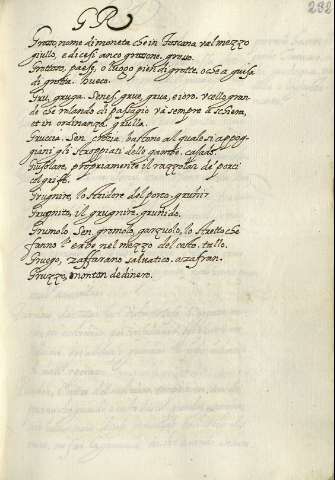 GR
232
Grosso, nome di moneta che in Toscana val mezzo
giulio, e dicesi anco grossone. grosso.
Grottoso, paese, o luogo pien di grotte, o che a guisa
di grotta.
Gru, gruga. Senes. grue, grua, e
che volando di passagio va sempre a schiera,
et in ordinanza. grulla.
Gruccia. Sen. croccia, bastone al quale si appog=
giani gli stroppiati delle gambe. cajado.
Grufolare, propriamente il razzolar de' porci
col griffo.
Grugnire, lo stridore del porco. gruñir
Grugnito, il grugnire. gruñido.
Grumolo. Sen. gromolo, garzuolo, lo stretto che
fanno l'erbe nel mezzo del cesto. tallo.
Gruogo, zaffarano salvatico. azafran.
Gruzzo, monton de dinero.